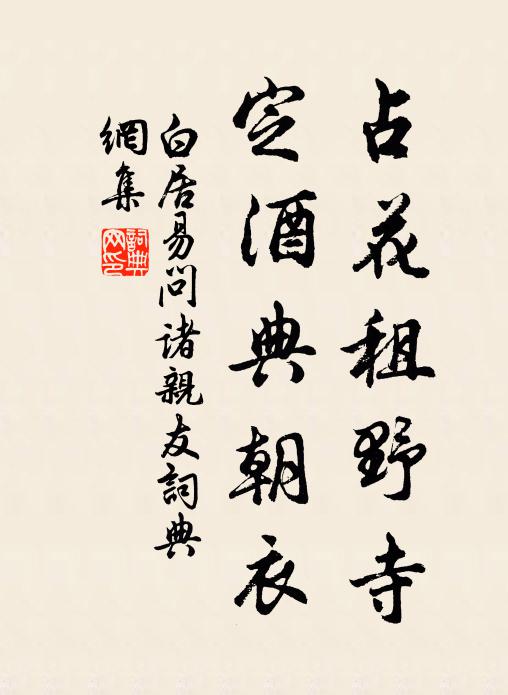 占花租野寺
定酒典朝衣
白居易問諸親友詞典
網集
詞典
网印